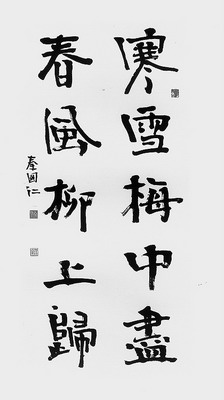 寒雪梅中盡
春風柳上歸
秦國仁